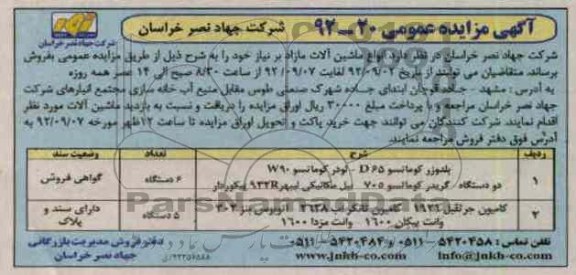 آگهی مزایده عمومی ۲۰ــ۹۲ شرکت جهاد نصر خراسان
شرکت جهاد نصر خراسان
شرکت جهاد نصر خراسان در نظر دارد انواع ماشین آلات مازاد بر نیاز خود را به شرح ذیل از طریق مزایده عمومی بفروش
برساند. متقاضیان می توانند از تاریخ ۹۲/۰۹/۰۲ لغایت ۹۲/۰۹/۰۷ از ساعت ۸/۳۰ صبح الی ۱۴ عصر همه روزه
به آدرس : مشهد - جاده قوچان ابتدای جاده شهرک صنعتی طوس مقابل منبع آب خانه سازی مجتمع انبارهای شرکت
جهاد نصر خراسان مراجعه و با پرداخت مبلغ ۳۰۰۰۰ ریال اوراق مزایده را دریافت و نسبت به بازدید ماشین آلات مورد نظر
اقدام نمایند. شرکت کنندگان می توانند جهت خرید پاکت و تحویل اوراق مزایده تا ساعت ۱۲ظهر مورخه ۹۲/۰۹/۰۷ به
آدرس فوق دفتر فروش مراجعه نمایند.
ردیف شرح تعداد وضعیت سند
۱ بلدوزر کوماتسو D۶۵ - لودر کوماتسو W۹۰ ۶ دستگاه گواهی فروش
دو دستگاه گریدر کوماتسو ۷۰۵ بیل مکانیکی لیبهر ۹۳۲R پیکوردار
۲ کامیون جرثقیل ۱۹۲۶ کامیون تانکر آب ۲۶۲۸ اتوبوس بنز ۳۰۲ ۵ دستگاه دارای سند و پلاک
وانت پیکان ۱۶۰۰ وانت مزدا ۱۶۰۰
تلفن تماس : ۵۴۲۰۴۵۸ ۰۵۱۱ و ۵۴۲۰۴۸۴ ۰۵۱۱ دفتر فروش مدیریت بازرگانی
www.jnkh-co.com info@jnkh-co.com جهاد نصر خراسان